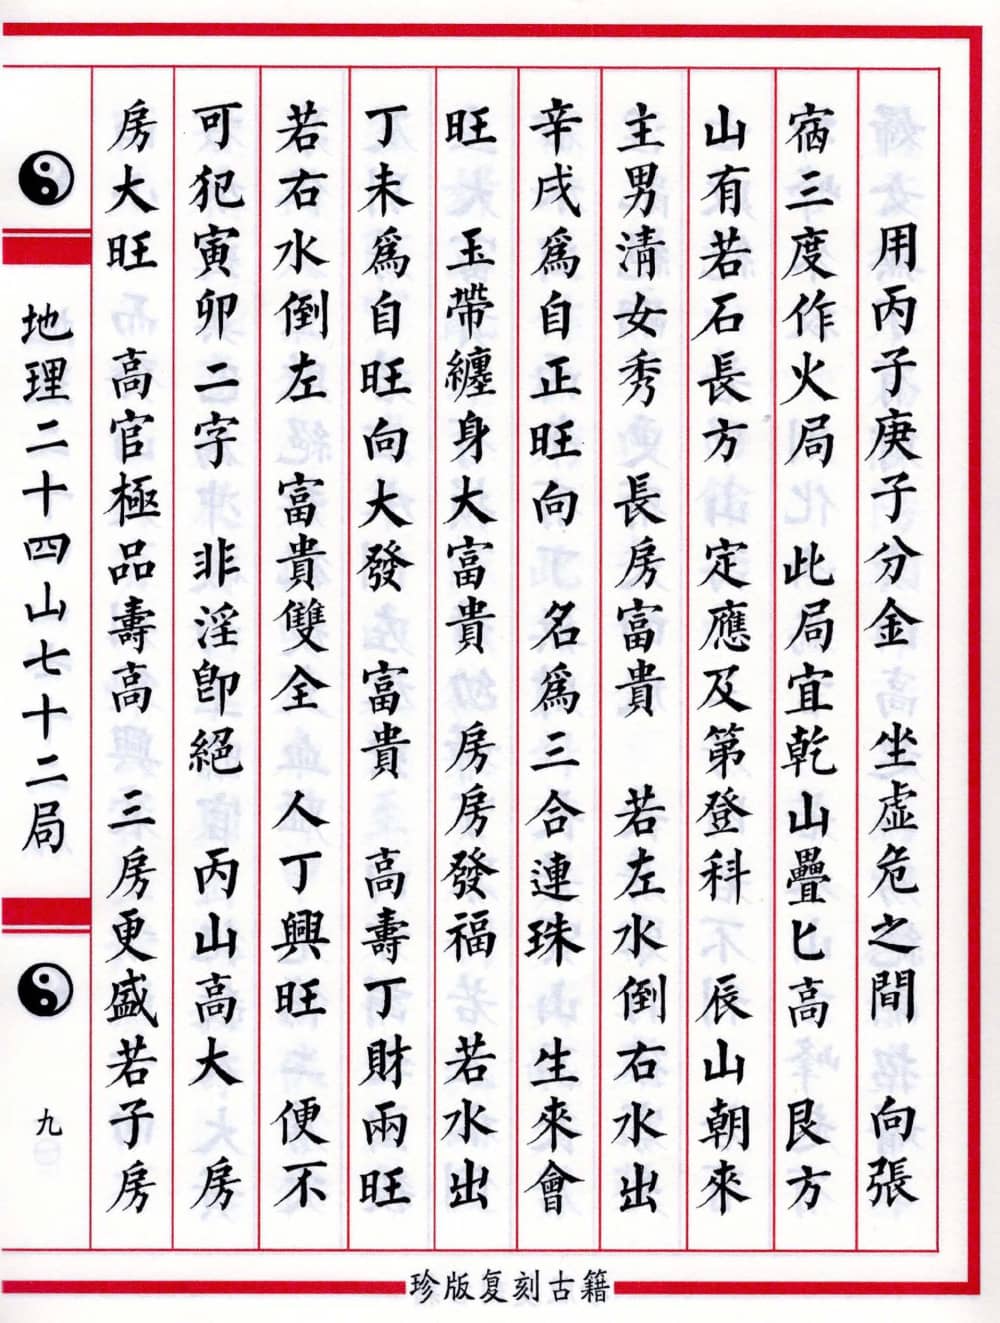 用丙子庚子分金　坐虛危之間　向張
宿三度作火局　此局宜乾山疊匕高　艮方
山有若石長方　定應及第登科　辰山朝來
主男清女秀　長房富貴　若左水倒右水出
辛戌為自正旺向　名為三合連珠　生來會
旺　玉帶纏身大富貴　房房發福　若水出
丁未為自旺向大發　富貴　高壽丁財兩旺
若右水倒左　富貴雙全　人丁興旺　便不
可犯寅卯二字　非淫卽絕　丙山高大　房
房大旺　高官極品壽高　三房更盛若子房
地理二十四山七十二局
九
珍版复刻古籍